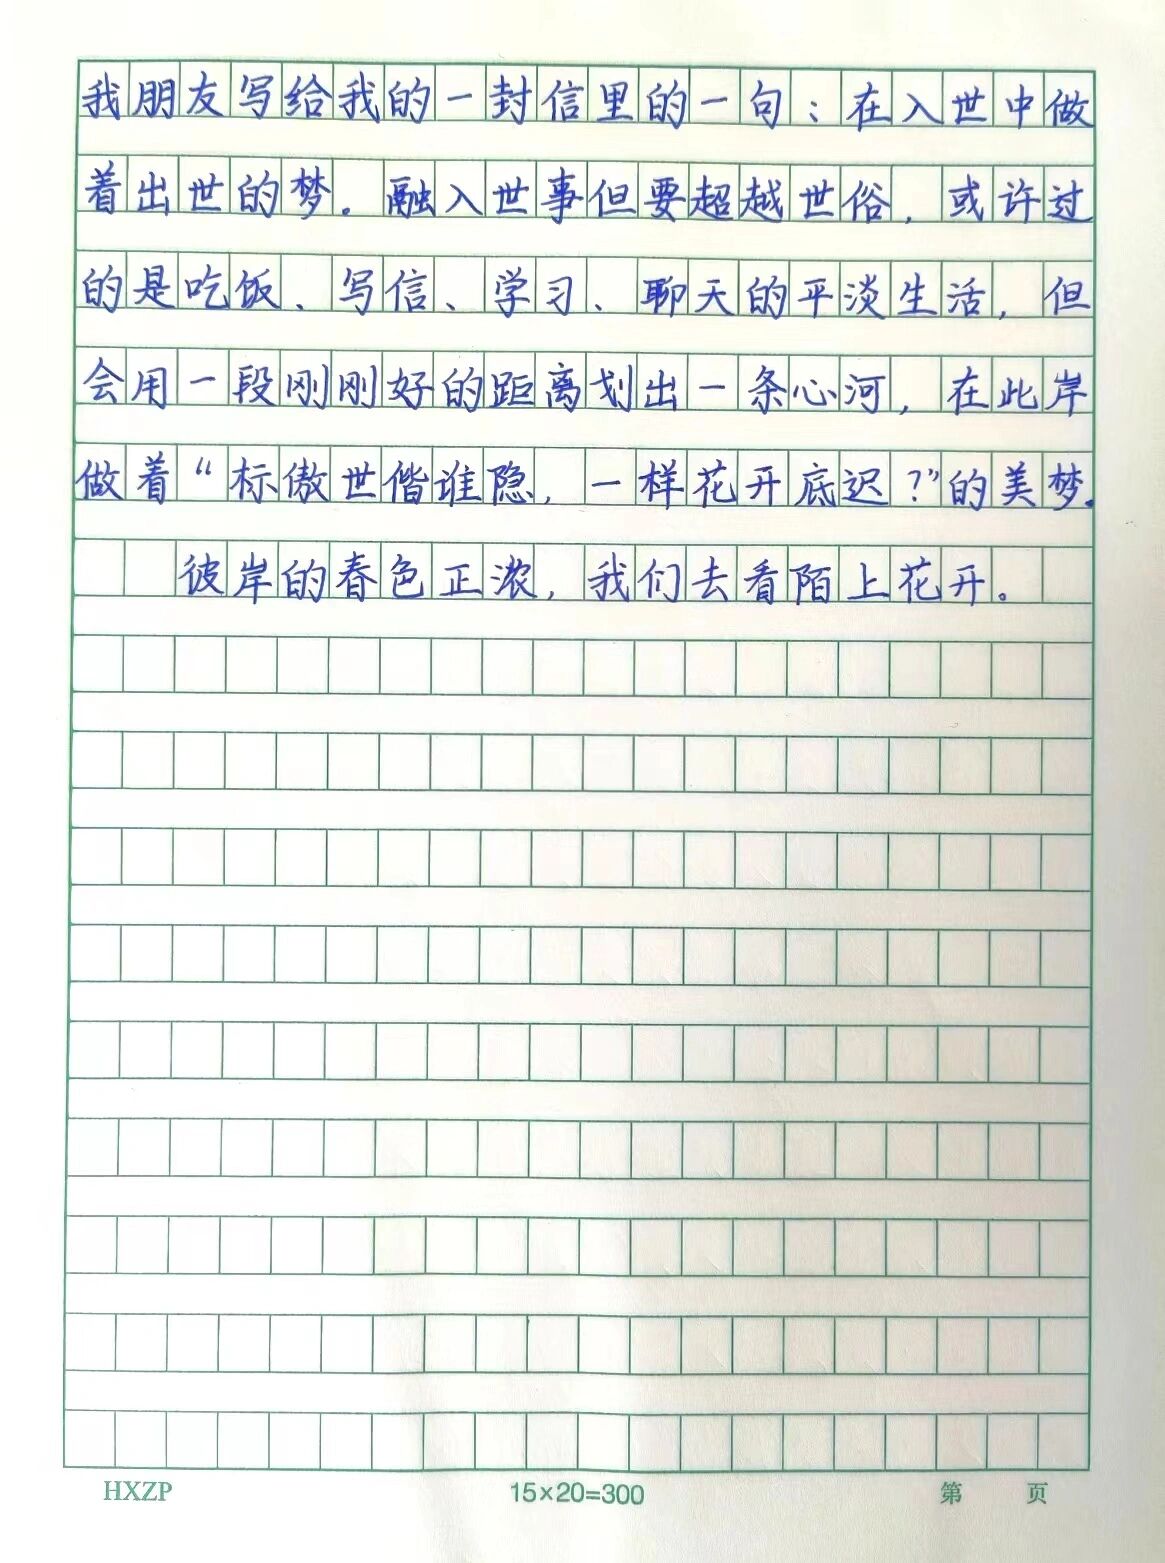 我朋友写给我的一封信里的一句：在入世中做
着出世的梦。融入世事但要超越世俗，或许过
的是吃饭、写信、学习、聊天的平淡生活，但
会用一段刚刚好的距离划出一条心河，在此岸
做着“标傲世偕谁隐，一样花开底迟？”的美梦。
彼岸的春色正浓，我们去看陌上花开。
HXZP 15×20=300 第 页